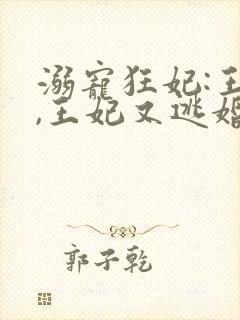 溺宠狂妃:王
,王妃又逃婚
郭子乾